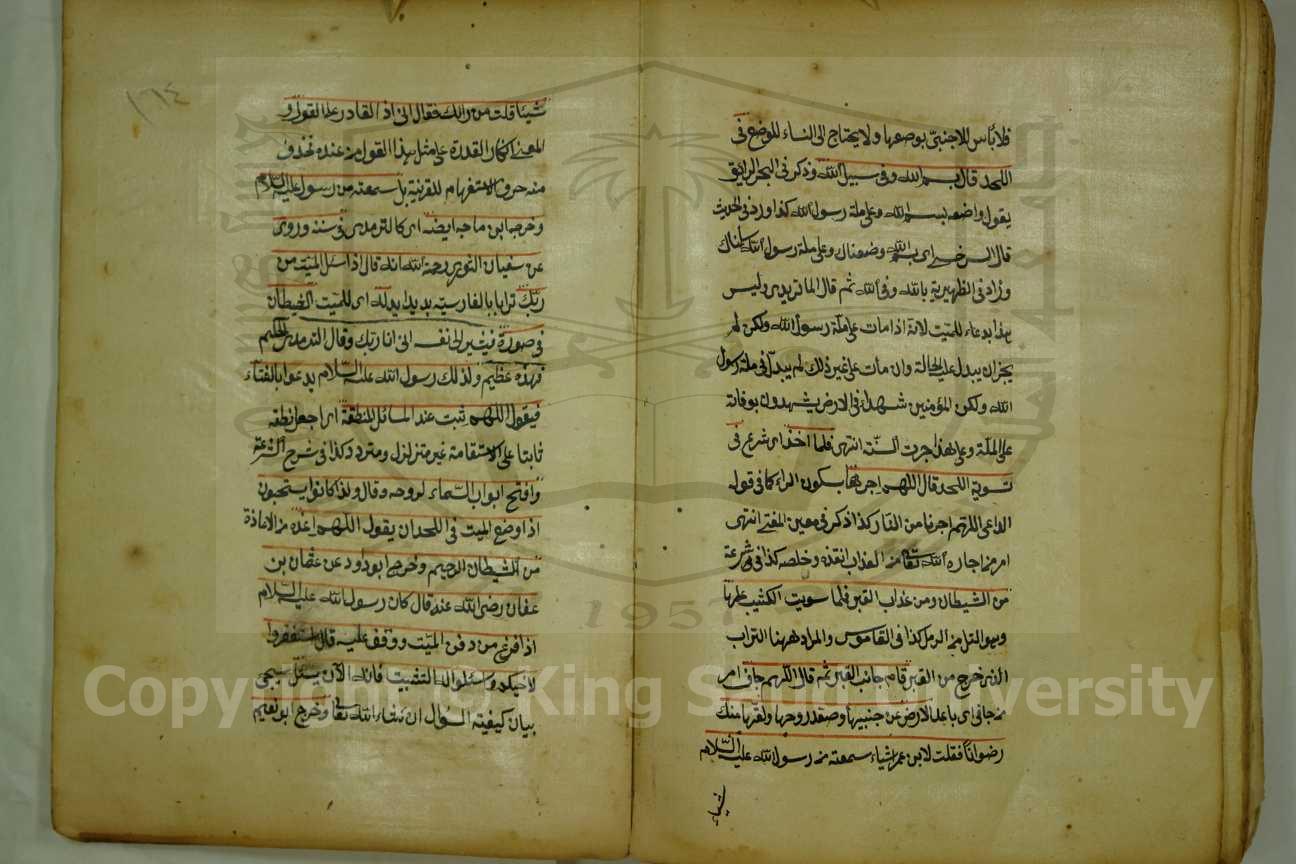 فلا بأس للاجنبيّ بوضعها ولا يحتاج الى النساء للوضع فى
اللحد قال بسم الله وفى سبيل الله وذكر فى البحر الرايق
يقول واضعه بسم الله وعلى ملة رسول الله كذا ورد فى الحديث
قال السرخسى اى بسم الله وضعناك وعلى ملة رسول الله سلمناك
وزاد فى الظهيرية بالله وفى الله ثم قال الماتريدى وليس
هذا بدعاء للميت لانه اذا مات على ملة رسول الله ولكن لم
يجز ان يبدل عليه الحالة وان مات على غير ذلك لم يبدل فى ملة رسول
الله ولكن المؤمنين شهداء فى الارض يشهدون بوفاته
على الملة وعلى هذا جرت السنة انتهى فلما اخذ اى شرع فى
تسوية اللحد قال اللهم اجرها بسكون الراء كما فى قوله
الداعى اللهم اجرنا من النار كذا ذكر فى معين المفتى انتهى
امر من اجاره الله تعالى من العذاب انقذه وخلصه كذا فى شرعة
من الشيطان ومن عذاب القبر فلما سويت الكثيب عليها
وهو التل من الرمل كذا فى القاموس والمراد ههنا التراب
الذى خرج من القبر قام جانب القبر ثم قال اللهم جاف امر
من جافى اى باعد الارض عن جنبيها وصعد روحها ولقها منك
رضوانا فقلت لابن عمر اشياء سمعته من رسول الله عليه السلام
شيئا
١٦٤
شيئا قلت من رأيك فقال انى اذا لقادر على القول و
المعنى كان القدرة على مثل هذا القول من عنده فحذف
منه حرف الاستفهام للقرينة بل سمعته من رسول عليه السلام
وخرجه ابن ماجه ايضه اى كالترمدى فى سننه وروى
عن سفيان الثورى رحمة الله انه قال اذا سئل الميت من
ربك ترايا بالفارسية بديدايد له اى للميت الشيطان
فى صورة فيشير الى نفسه انى انا ربك وقال الترمدى الحكيم
فهذه عظيم ولذلك رسول الله عليه السلام يدعوا بالثبات
فيقول اللهم ثبت عند المسائل المنطقة اى اجعل نطقه
ثابتا على الاستقامة غير متزلزل ومتردد كذا فى شرح الشرعة
وافتح ابواب السماء لروحه وقال ولذا كانوا يستحبون
اذا وضع الميت فى اللحد ان يقول اللهم اعذه من الاعاذة
من الشيطان الرجيم وخرج ابو داود عن عثمان بن
عفان رضى الله عنه قال كان رسول الله عليه السلام
اذا فرغ من دفن الميت ووقف عليه قال استغفروا
لاخيكم واسئلوا له التثبيت فانه الآن يسئل سيجى
بيان كيفية السؤال ان شاء الله تعالى وخرج ابو نعيم
1957
Copyright © King Saud University